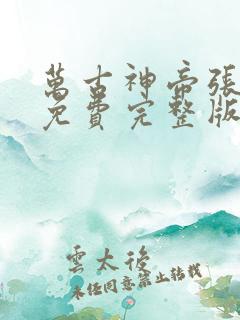 萬古神帝張
免費完整版
雲太後
未經同意禁止轉載